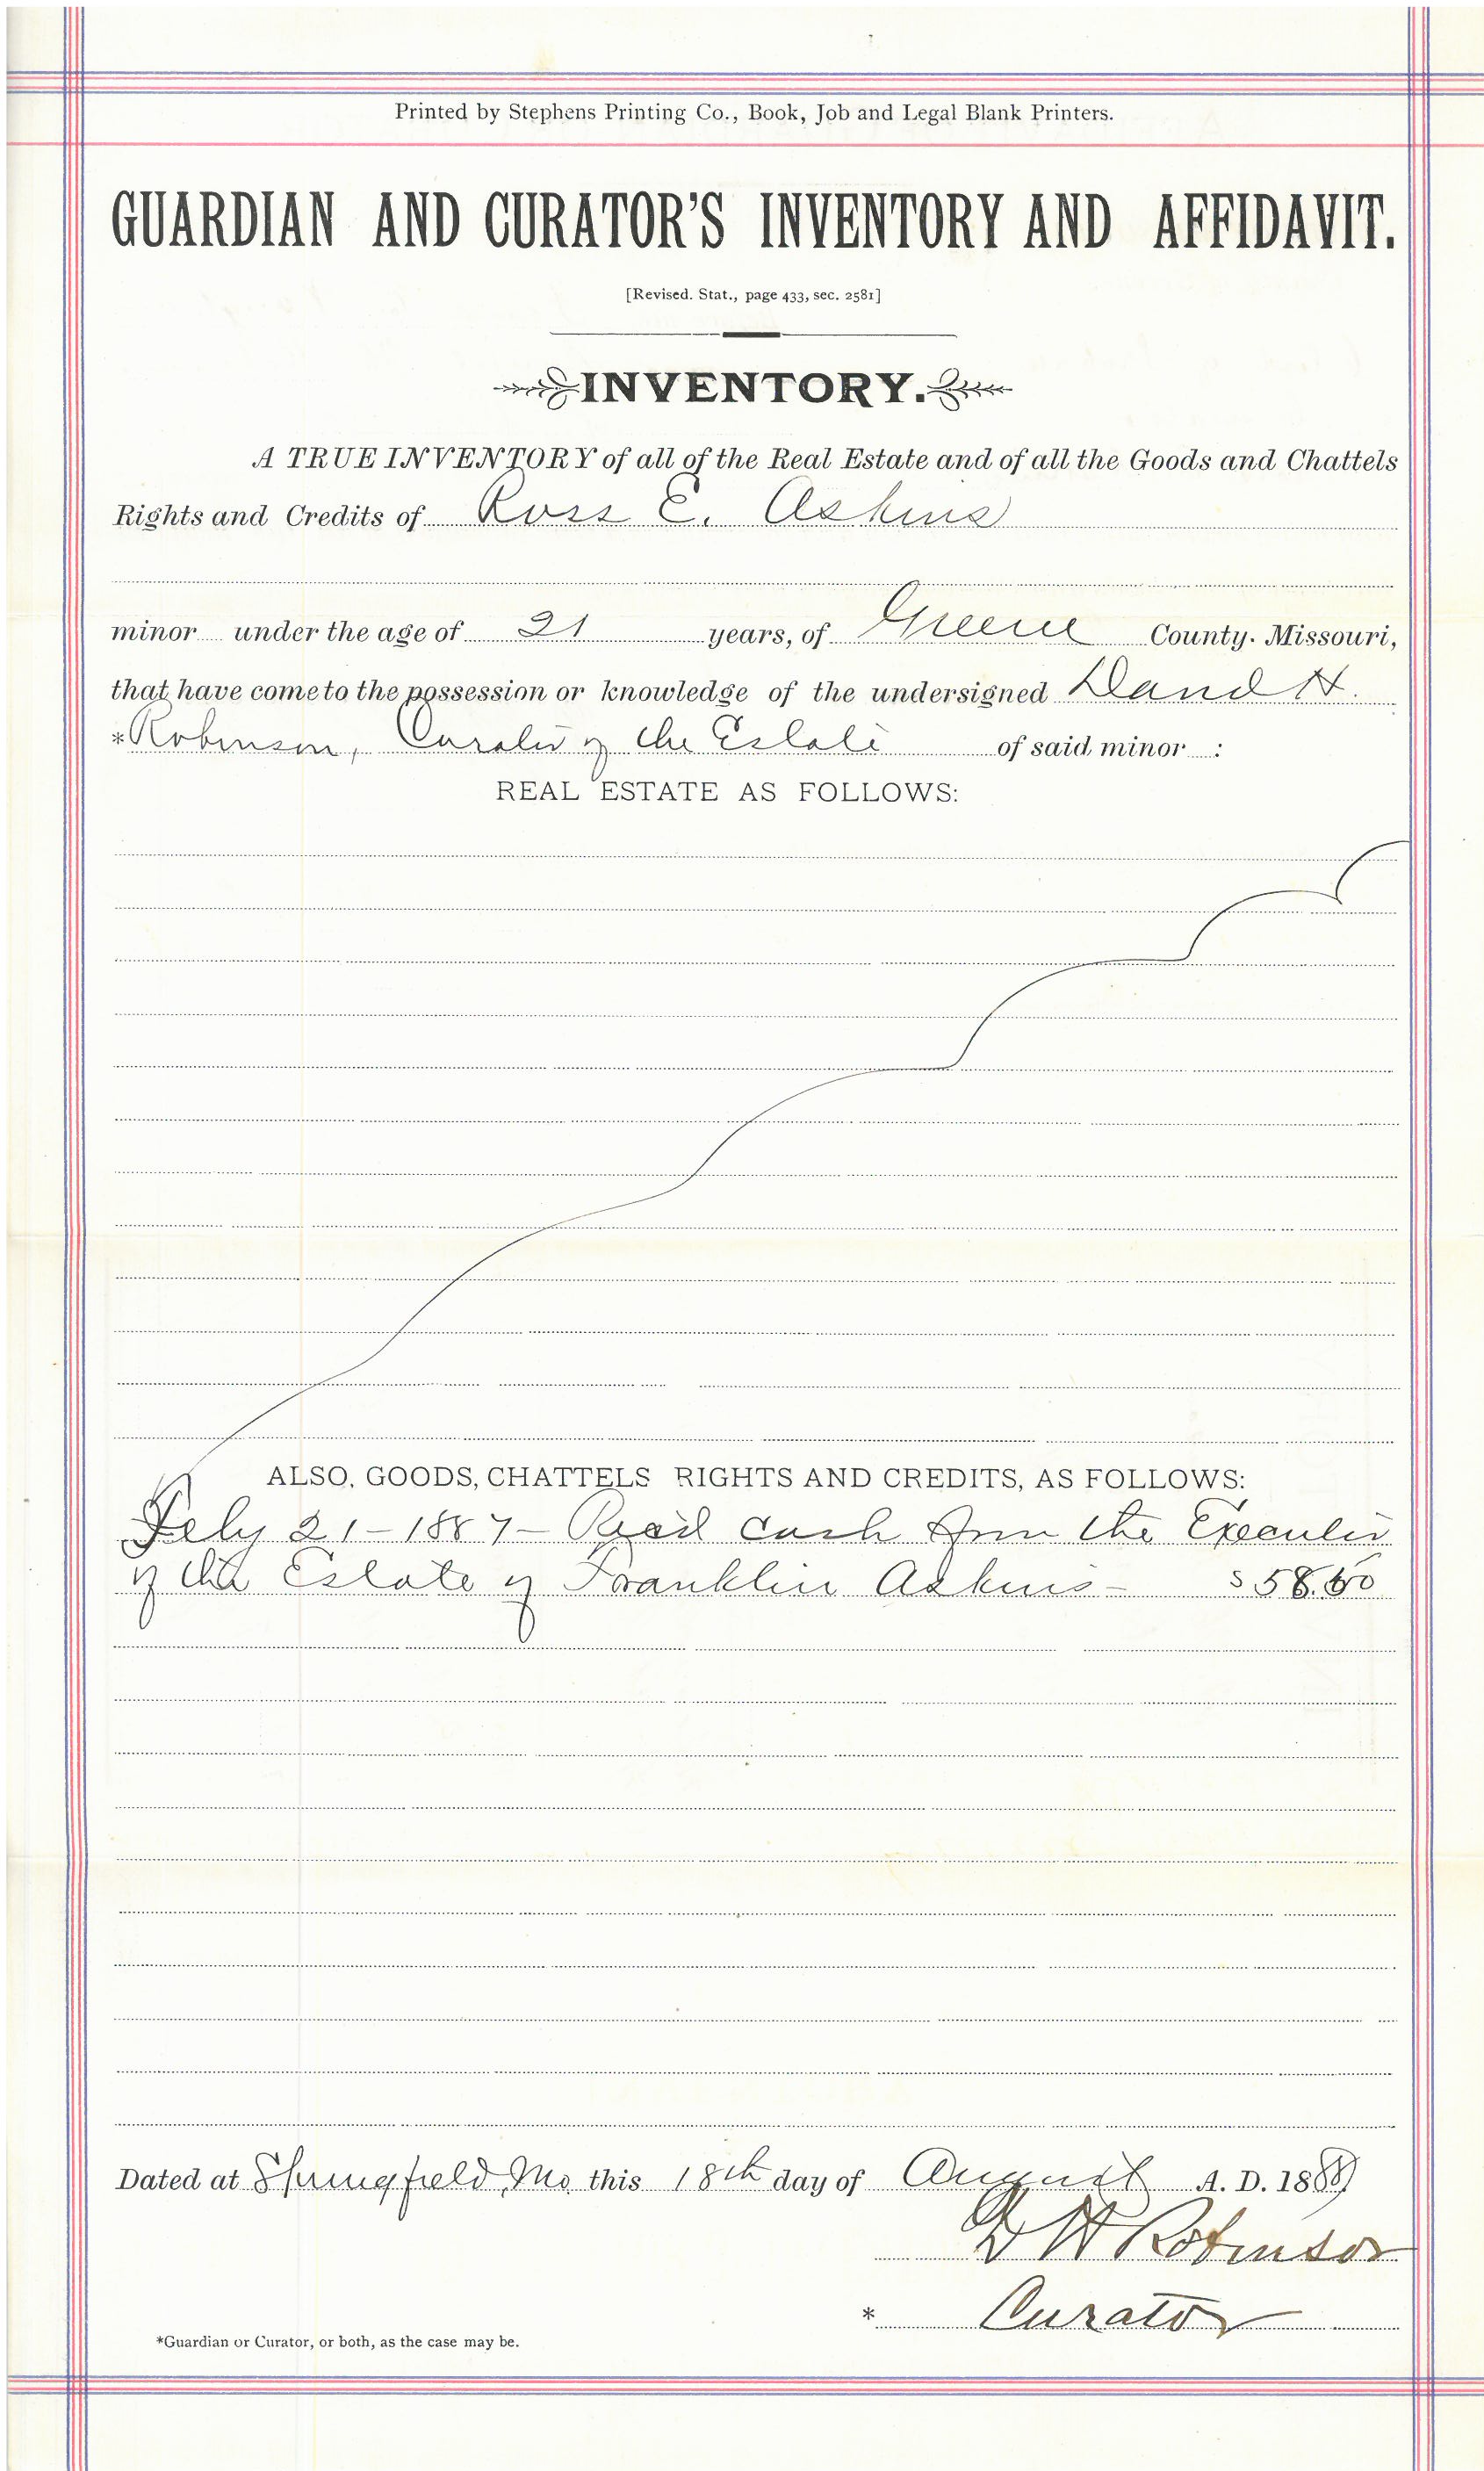 Printed by Stephens Printing Co., Book, Job and Legal Blank Printers.
GUARDIAN AND CURATOR'S INVENTORY AND AFFIDAVIT.
[Revised. Stat., page 433, sec. 2581]
INVENTORY.
A TRUE INVENTORY of all of the Real Estate and of all the Goods and Chattels
Rights and Credits of Ross E. Askins
minor under the age of 21 years, of Greene County. Missouri,
that have come to the possession or knowledge of the undersigned David H.
*Robinson, Curator of the Estate of said minor :
REAL ESTATE AS FOLLOWS:
ALSO, GOODS, CHATTELS RIGHTS AND CREDITS, AS FOLLOWS:
21-1887- Recd cash from the Executor
of the Estate of Franklin Askins- $58.
Dated at Springfield, Mo this 18th day of August A. D. 188
D H Robinson
* Curator
*Guardian or Curator, or both, as the case may be.